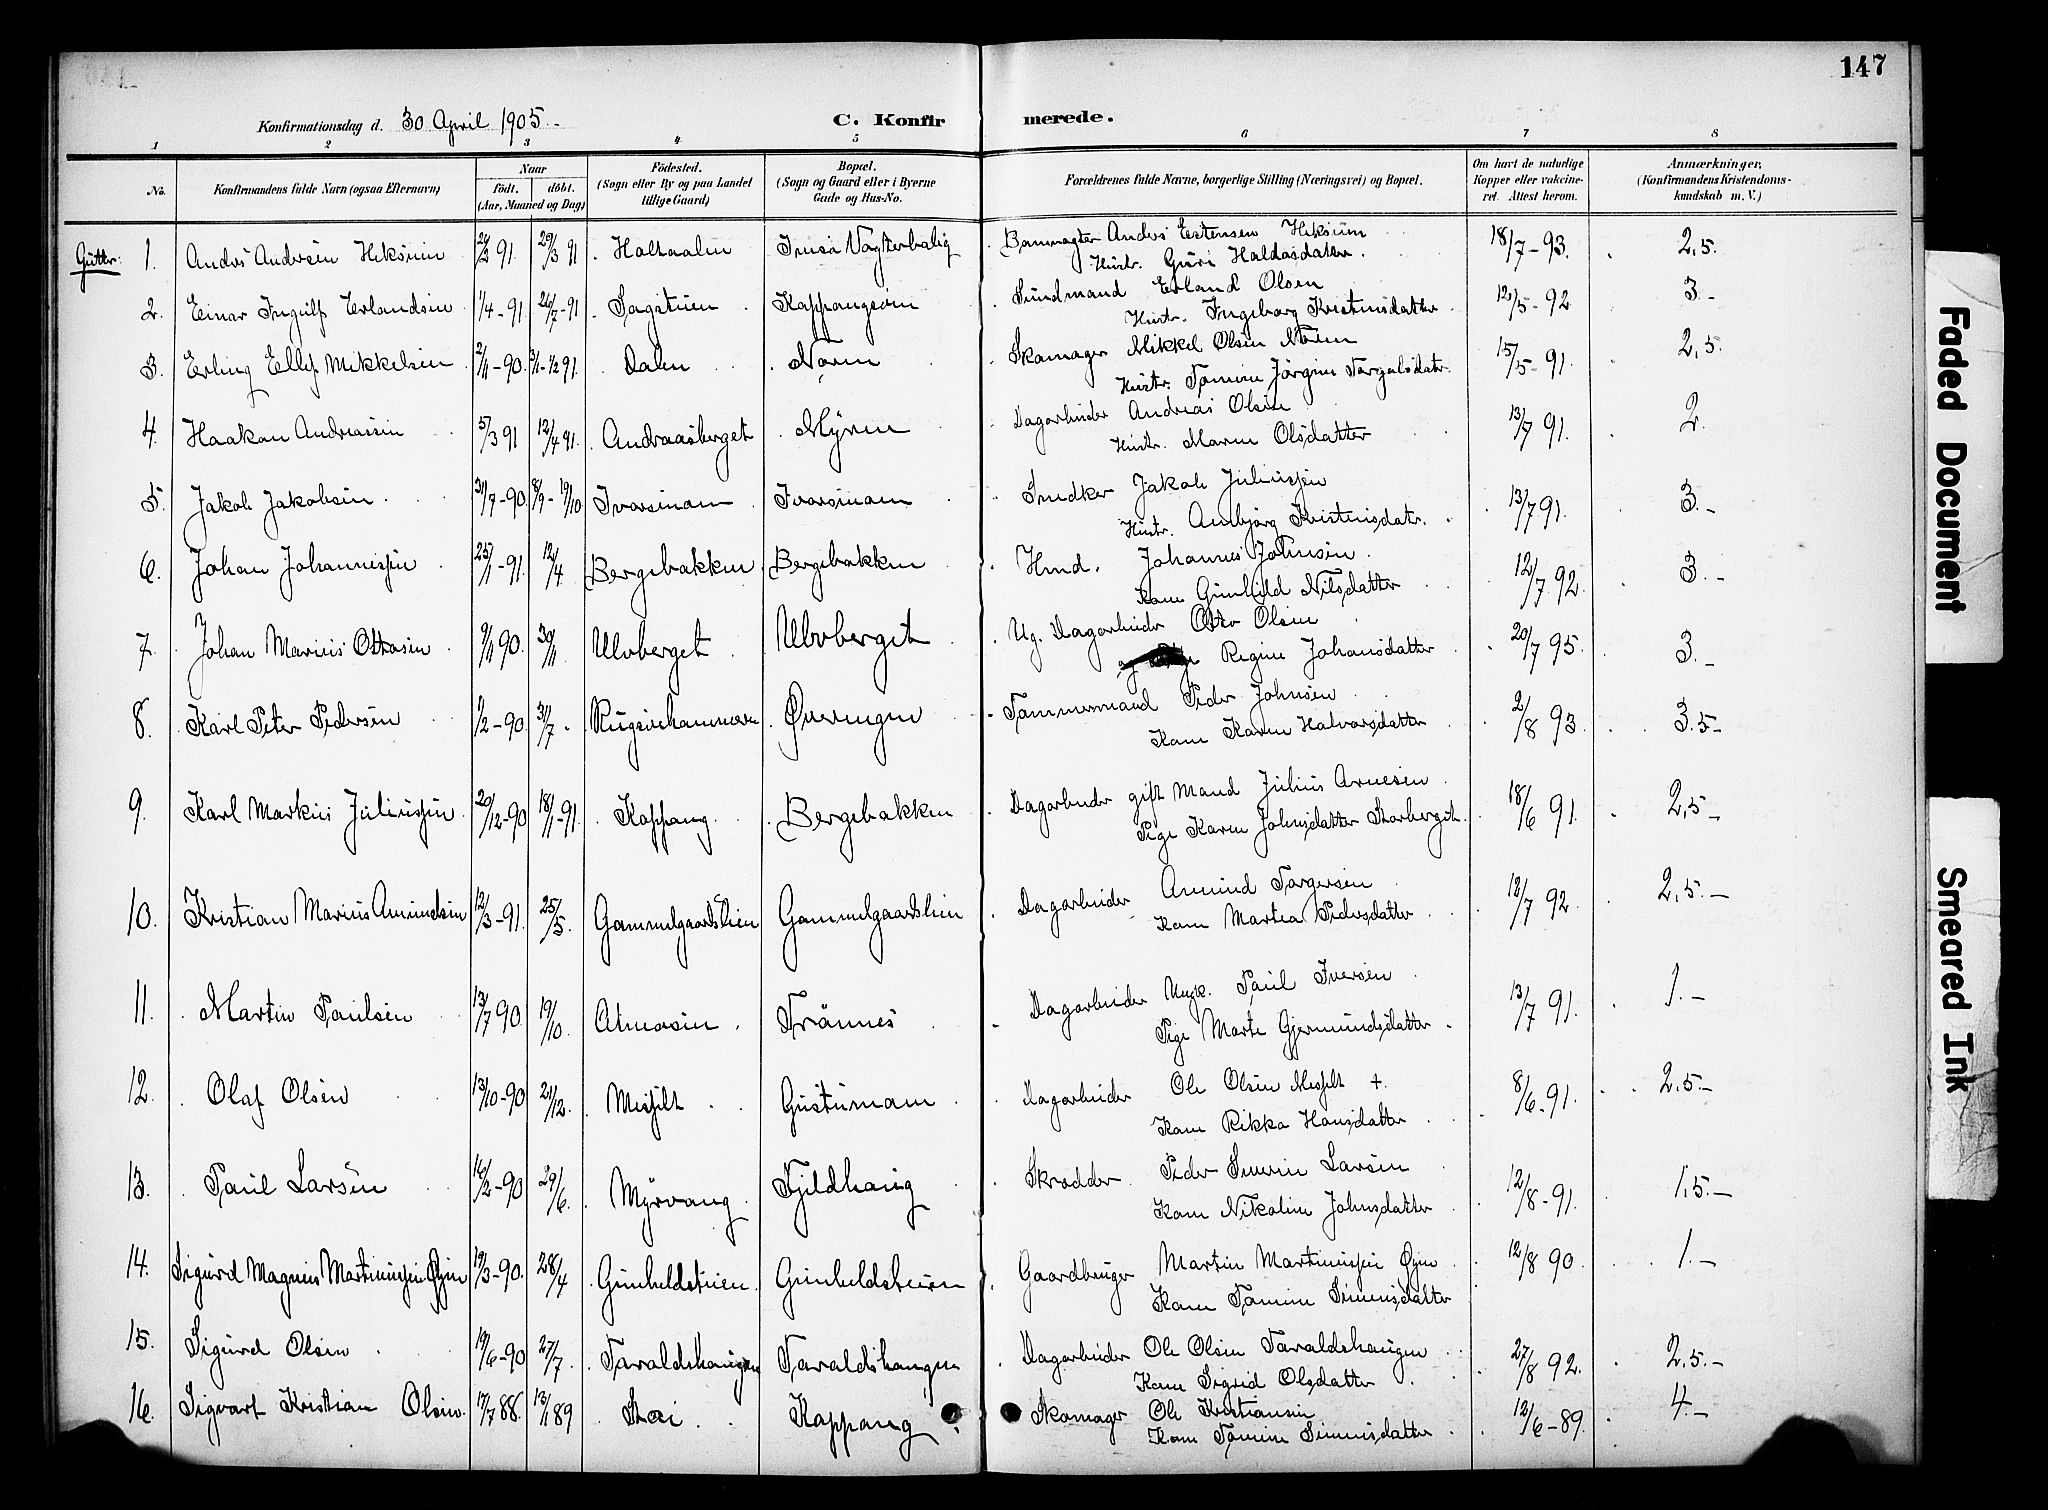 147
Konfirmationsdag d. 30 April 1905. C. Konfirmerede.
1 2 3 4 5 6 7 8
No. Konfirmandens fulde Navn (ogsaa Efternavn) Naar født. døbt. (Aar, Maaned og Dag) Födested. (Sogn eller By og paa Landet tillige Gaard) Bopæl. (Sogn og Gaard eller i Byerne Gade og Hus-No. Forældrenes fulde Navne, borgerlige Stilling (Næringsvei) og Bopæl. Om havt de naturlige Kopper eller vakcineret. Attest herom. Anmærkninger, (Konfirmandens Kristendomskundskab m. V.)
Gutter:
1. Anders Andersen 91 29/3 91 Holtaalen Imsa Anders Estensen 18/7-93. 2,5.
Hustr. Guri Haldosdatter.
2. Einar Ingulf Erlandsen 1/4-91 26/7-91 Sagstuen Koppangsøen Sundmand Erland Olsen 12/5-92 3.-
Hustr. Ingeborg Kristensdatter
3. Erling Ellef Mikkelsen 2/11-90 Dalen Noren Skomager Mikkel Olsen Noren 15/5-91. 2,5.
Hustr. Tomine Jørgine
4. Haakon Andreassen 5/3 91 12/4 91. Andreasberget Myren Dagarbeider Andreas Olsen 13/7 91. 2.
Hustr. Maren Olsdatter
5. Jakob Jakobsen 31/7-90 19/10 Ivarsmoen Ivarsmoen Snedker Jakob Juliussen 13/7 91. 3.-
Hustr. Kristensdatr.
6. Johan Johannessen 25/1-91. 12/4 Bergebakken Bergebakken Hmd. Johannes Johnsen 12/7 92. 3.-
Kone Gunhild Nilsdatter
7. Johan Marius Ottosen 9/11 90. 30/11. Ulvberget Ulvberget Ug. Dagarbeider Otto Olsen 20/7 95. 3.-
Regine Johansdatter
8. Karl Peter Pedersen 1/2-90 31/7 Øveringen Tømmermand Peder Johnsen 2/8 93. 3.5-
Kone Karen Halvorsdatter
9. Karl Markus Juliussen 20/12-90 18/1-91. Koppang. Bergebakken Dagarbeider gift Mand Julius Arnesen 18/6 91. 2,5-
Pige Karen Johnsdatter Storberget
10. Kristian Marius Amundsen 12/3-91. 25/5. Gammelgaardslien Gammelgaardslien Dagarbeider Amund Torgersen 12/7 92. 2,5.-
Kone Martea Pedersdatter
11. Martin Paulsen 13/7 90. 19/10 Atneosen Trønnes Dagarbeider Ungk. Paul Iversen 13/7 91. 1.-
Pige Marte Gjermundsdatter
12. Olaf Olsen 13/10-90 21/12. Messelt Gustumoen Dagarbeider Ole Olsen Messelt + 8/6-91. 2.5.-
Kone Rikka Hansdatter
13. Paul Larsen 16/2-90 29/6. Myrvang Fjeldhaug Skrædder Peder Severin Larsen 12/8-91. 1,5.-
Kone Nikoline Johnsdatter
14. Sigurd Magnus Martinussen Øien 19/3-90. 28/4 Gunheldstuen Gunheldstuen Gaardbruger Martin Martinussen Øien 12/8 90. 1.-
Kone Tomine Simensdatter
15. Sigurd Olsen 19/6-90 27/7. Taraldshaugen Taraldshaugen Dagarbeider Ole Olsen Taraldshaugen 27/8 92. 2.5.-
Kone Sigrid Olsdatter
16. Sigvart Kristian Olsen 17/7 88. 13/1 89 Stai Koppang Skomager Ole Kristiansen 12/6-89. 4.-
Kone Tomine Simensdatter
Faded Document
Smeared Ink